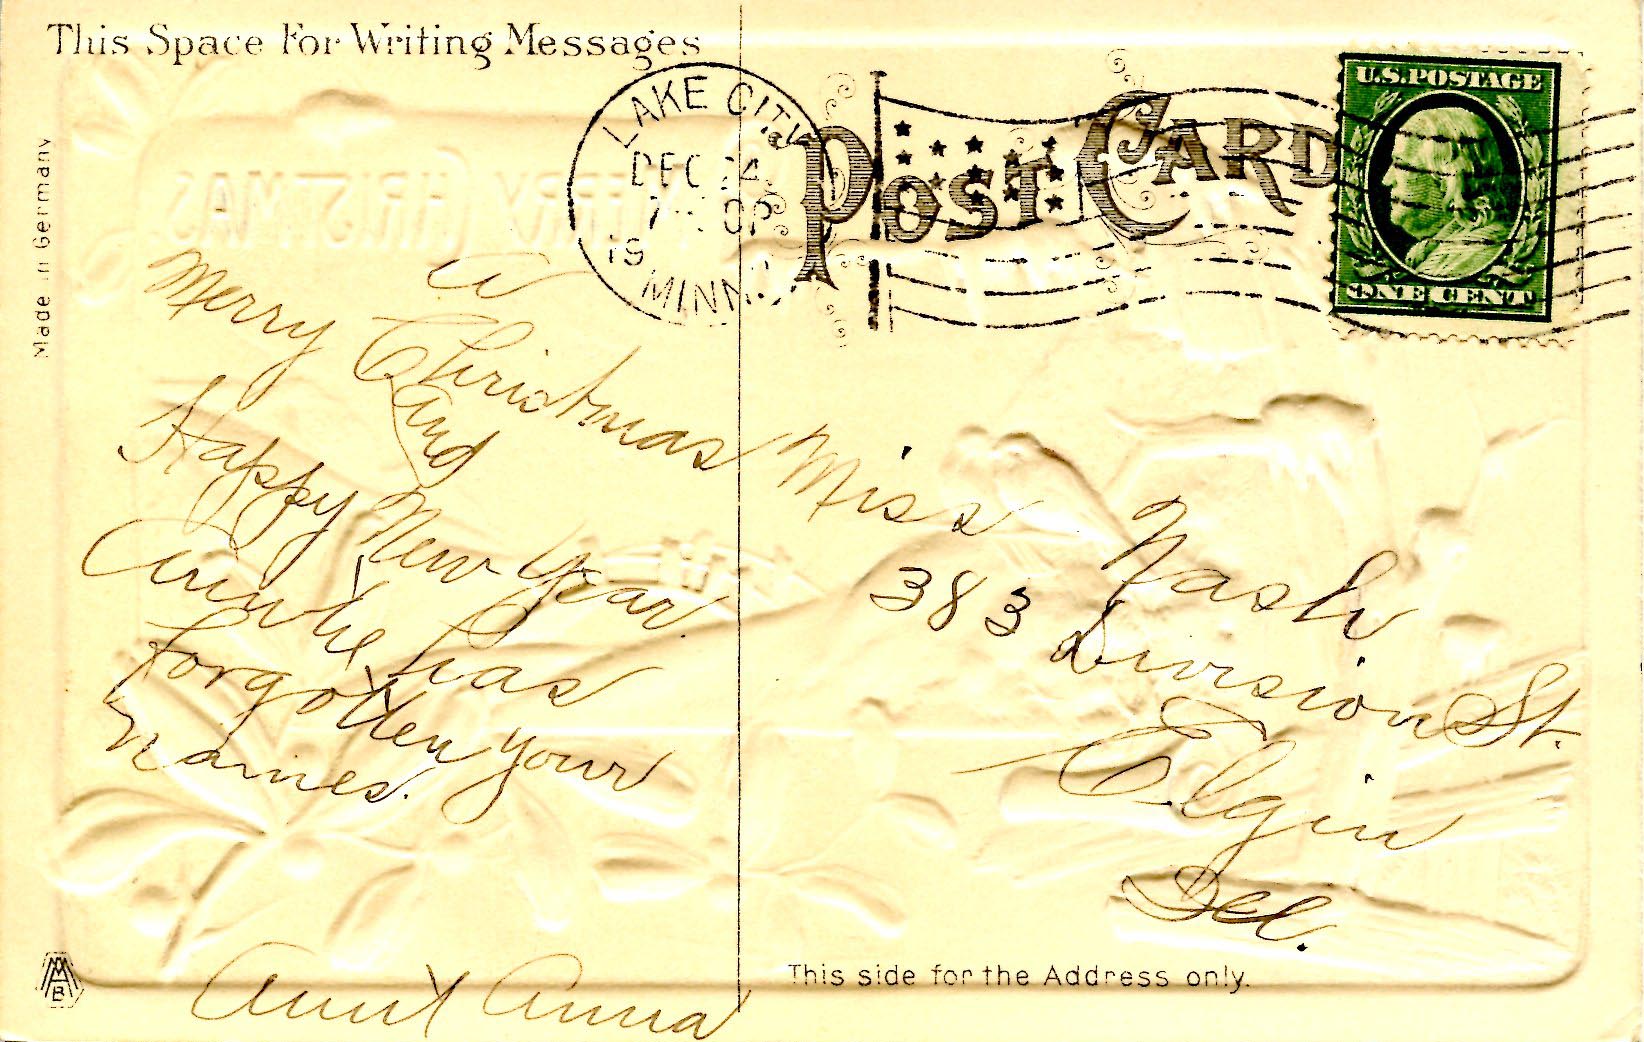 This Space For Writing Messages
Made in Germany
LAKE CITY
DEC 24
7 00P
19
MINN.
POST CARD
U.S. POSTAGE
ONE CENT
MERRY CHRISTMAS
A
Merry Christmas
and
Happy New Year
Auntie has
forgotten your
names.
Aunt Anna
Miss Nash
383 Division St.
Elgin
Ill.
This side for the Address only.
MAB